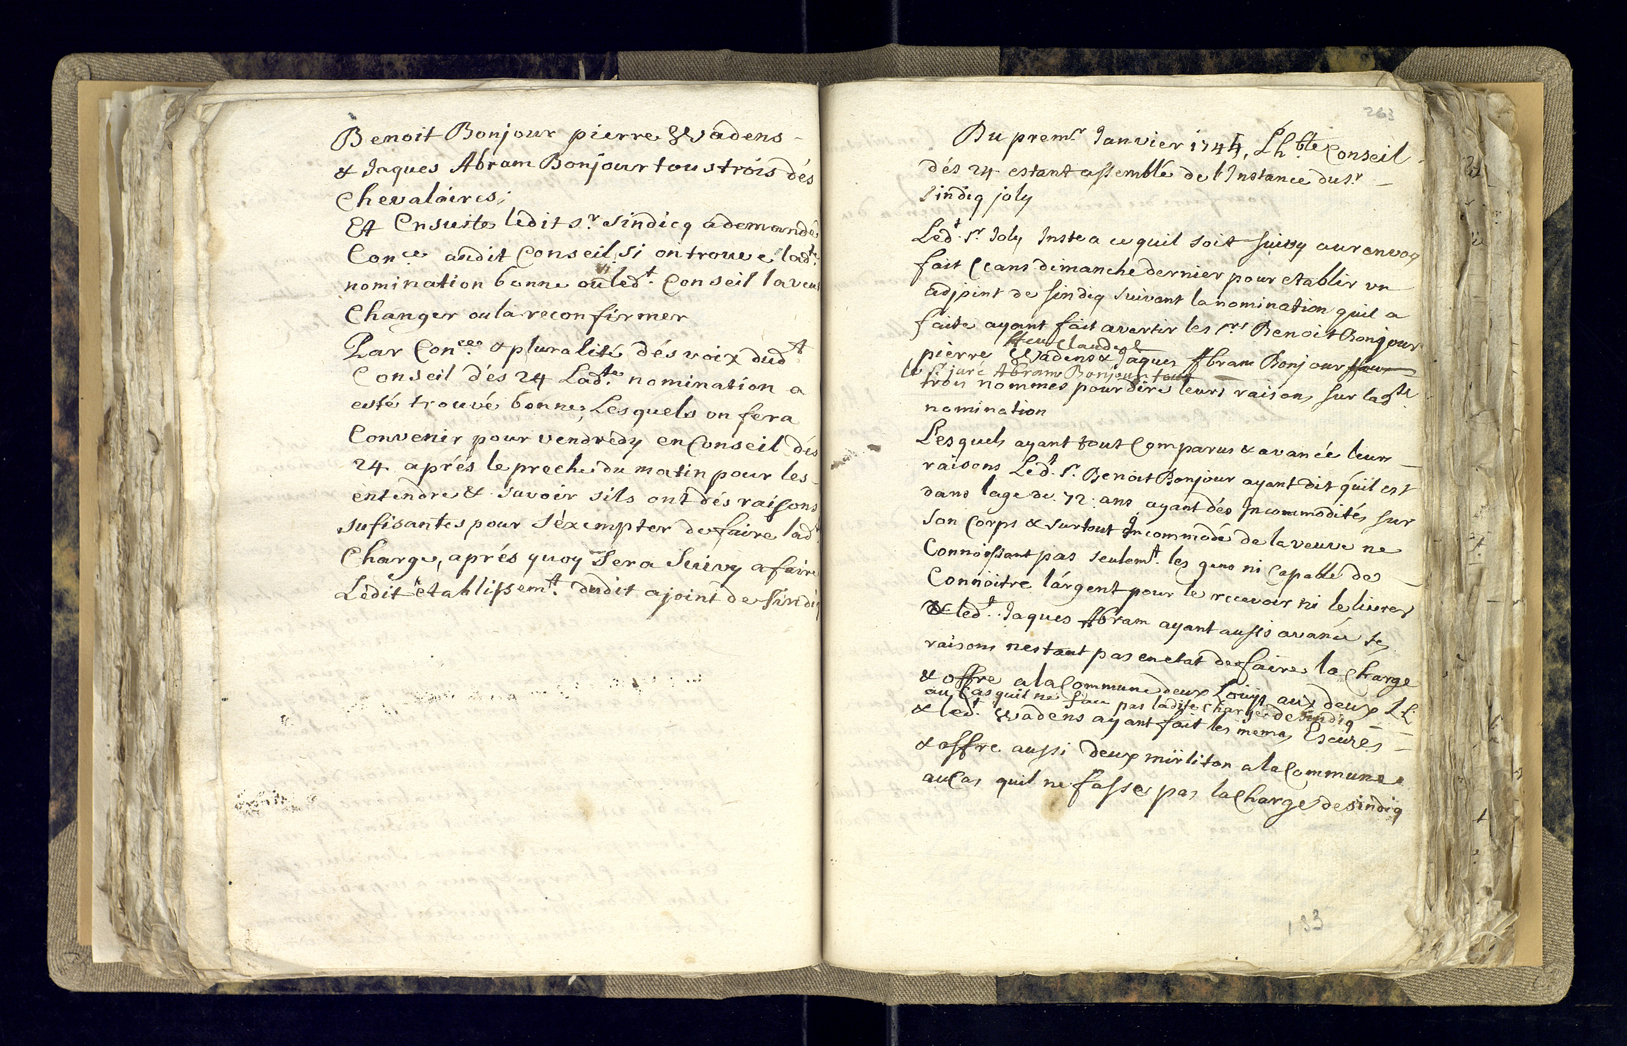 Benoit Bonjour pierre Wadens
& Jaques Abram Bonjour tous trois dés
Chevalaires;
Et Ensuitte ledit Sr. Sindicq a demandé
Conce. audit Conseil, Si on trouve ladte.
nomination bonne ou si ledt. Conseil la veut
Changer ou la reconfirmer
Par Conce. & pluralité dés voix dudt
Conseil dés 24 Ladte. nomination a
esté trouvé bonne; Lesquels on fera
Convenir pour vendredy en Conseil dés
24 aprés le preche du matin pour les
entendre & savoir sils ont dés raisons
sufisantes pour séxempter de faire ladte
Charge, aprés quoy Sera Suivy a faire
Ledit établissemt. dudit ajoint de sindiq
263
Du premr Janvier 1744, Lhble Conseil
dés 24 estant assemblé de l'Instance du sr.
Sindiq joly
Ledt. Sr. Joly Inste a ce quil soit suivy au renvoy
fait Ceans dimanche dernier pour etablir un
adjoint de sindiq suivant la nomination quil a
faite ayant fait avertir les srs Benoit Bonjour
ffeu Claude
pierre Wadens & Jaques Abram Bonjour
le Sr. juré Abram Bonjour tout
trois nommés pour dire leurs raisons sur ladte
nomination
Lesquels ayant tout Comparus & avancé leurs
raisons Ledt. Sr. Benoit Bonjour ayant dit quil est
dans lage de 72 ans ayant dés Incommodités sur
son Corps & surtout Incommodé de la veuve ne
Connoissant pas seulemt. les gens ni Capable de
Connoitre largent pour le recevoir ni le livrer
& ledt. Jaques Abram ayant aussi avancé ses
raisons nestant pas en etat de faire la Charge
& offre a la Commune deux Louys aux deux LL
au Cas quil ne face pas ladite Charge de sindiq
& ledt. Wadens ayant fait les memes Excuses
& offre aussi deux mirliton a la Commune
au Cas quil ne fasse pas la Charge de sindiq
133